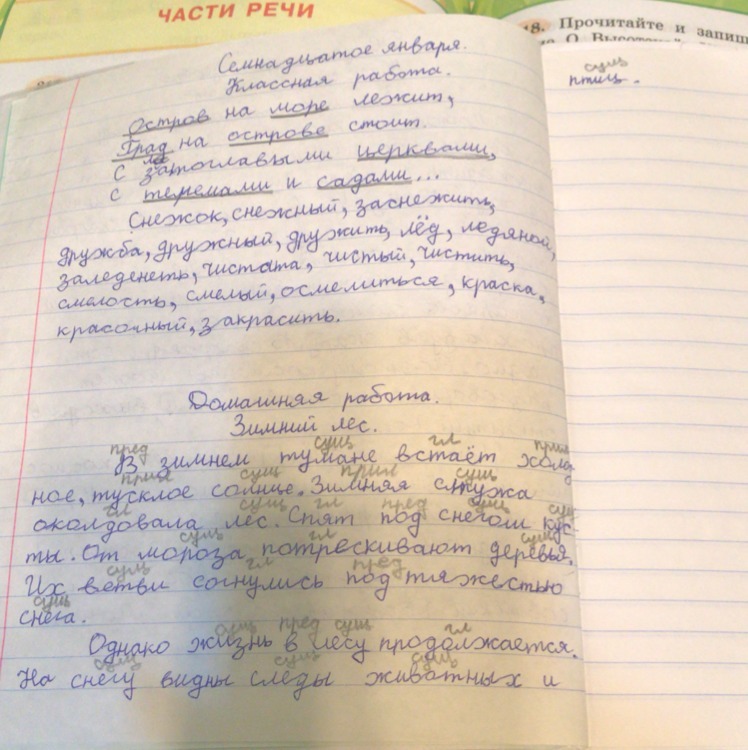 ЧАСТИ РЕЧИ
18. Прочитайте и запиш
О. Высотской
Семнадцатое января.
Классная работа.
Остров на море лежит,
Град на острове стоит.
С златоглавыми церквами,
с теремами и садами...
Снежок, снежный, заснежить,
дружба, дружный, дружить, лёд, ледяной,
заледенеть, чистота, чистый, чистить,
смелость, смелый, осмелиться, краска,
красочный, закрасить.
Домашняя работа.
Зимний лес.
пред сущ гл прил
В зимнем тумане встаёт холод
прил сущ прил сущ
ное, тусклое солнце. Зимняя стужа
гл сущ гл пред сущ сущ
околдовала лес. Спят под снегом кус-
сущ гл сущ
ты. От мороза потрескивают деревья.
сущ гл пред
Их ветви согнулись под тяжестью
сущ
снега.
сущ пред сущ гл
Однако жизнь в лесу продолжается.
сущ сущ сущ
На снегу видны следы животных и
сущ
птиц.